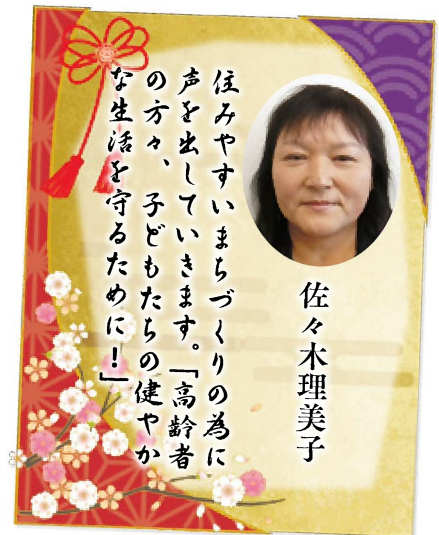 住みやすいまちづくりの為に
声を出していきます。「高齢者
の方々、子どもたちの健やか
な生活を守るために！」
佐々木理美子